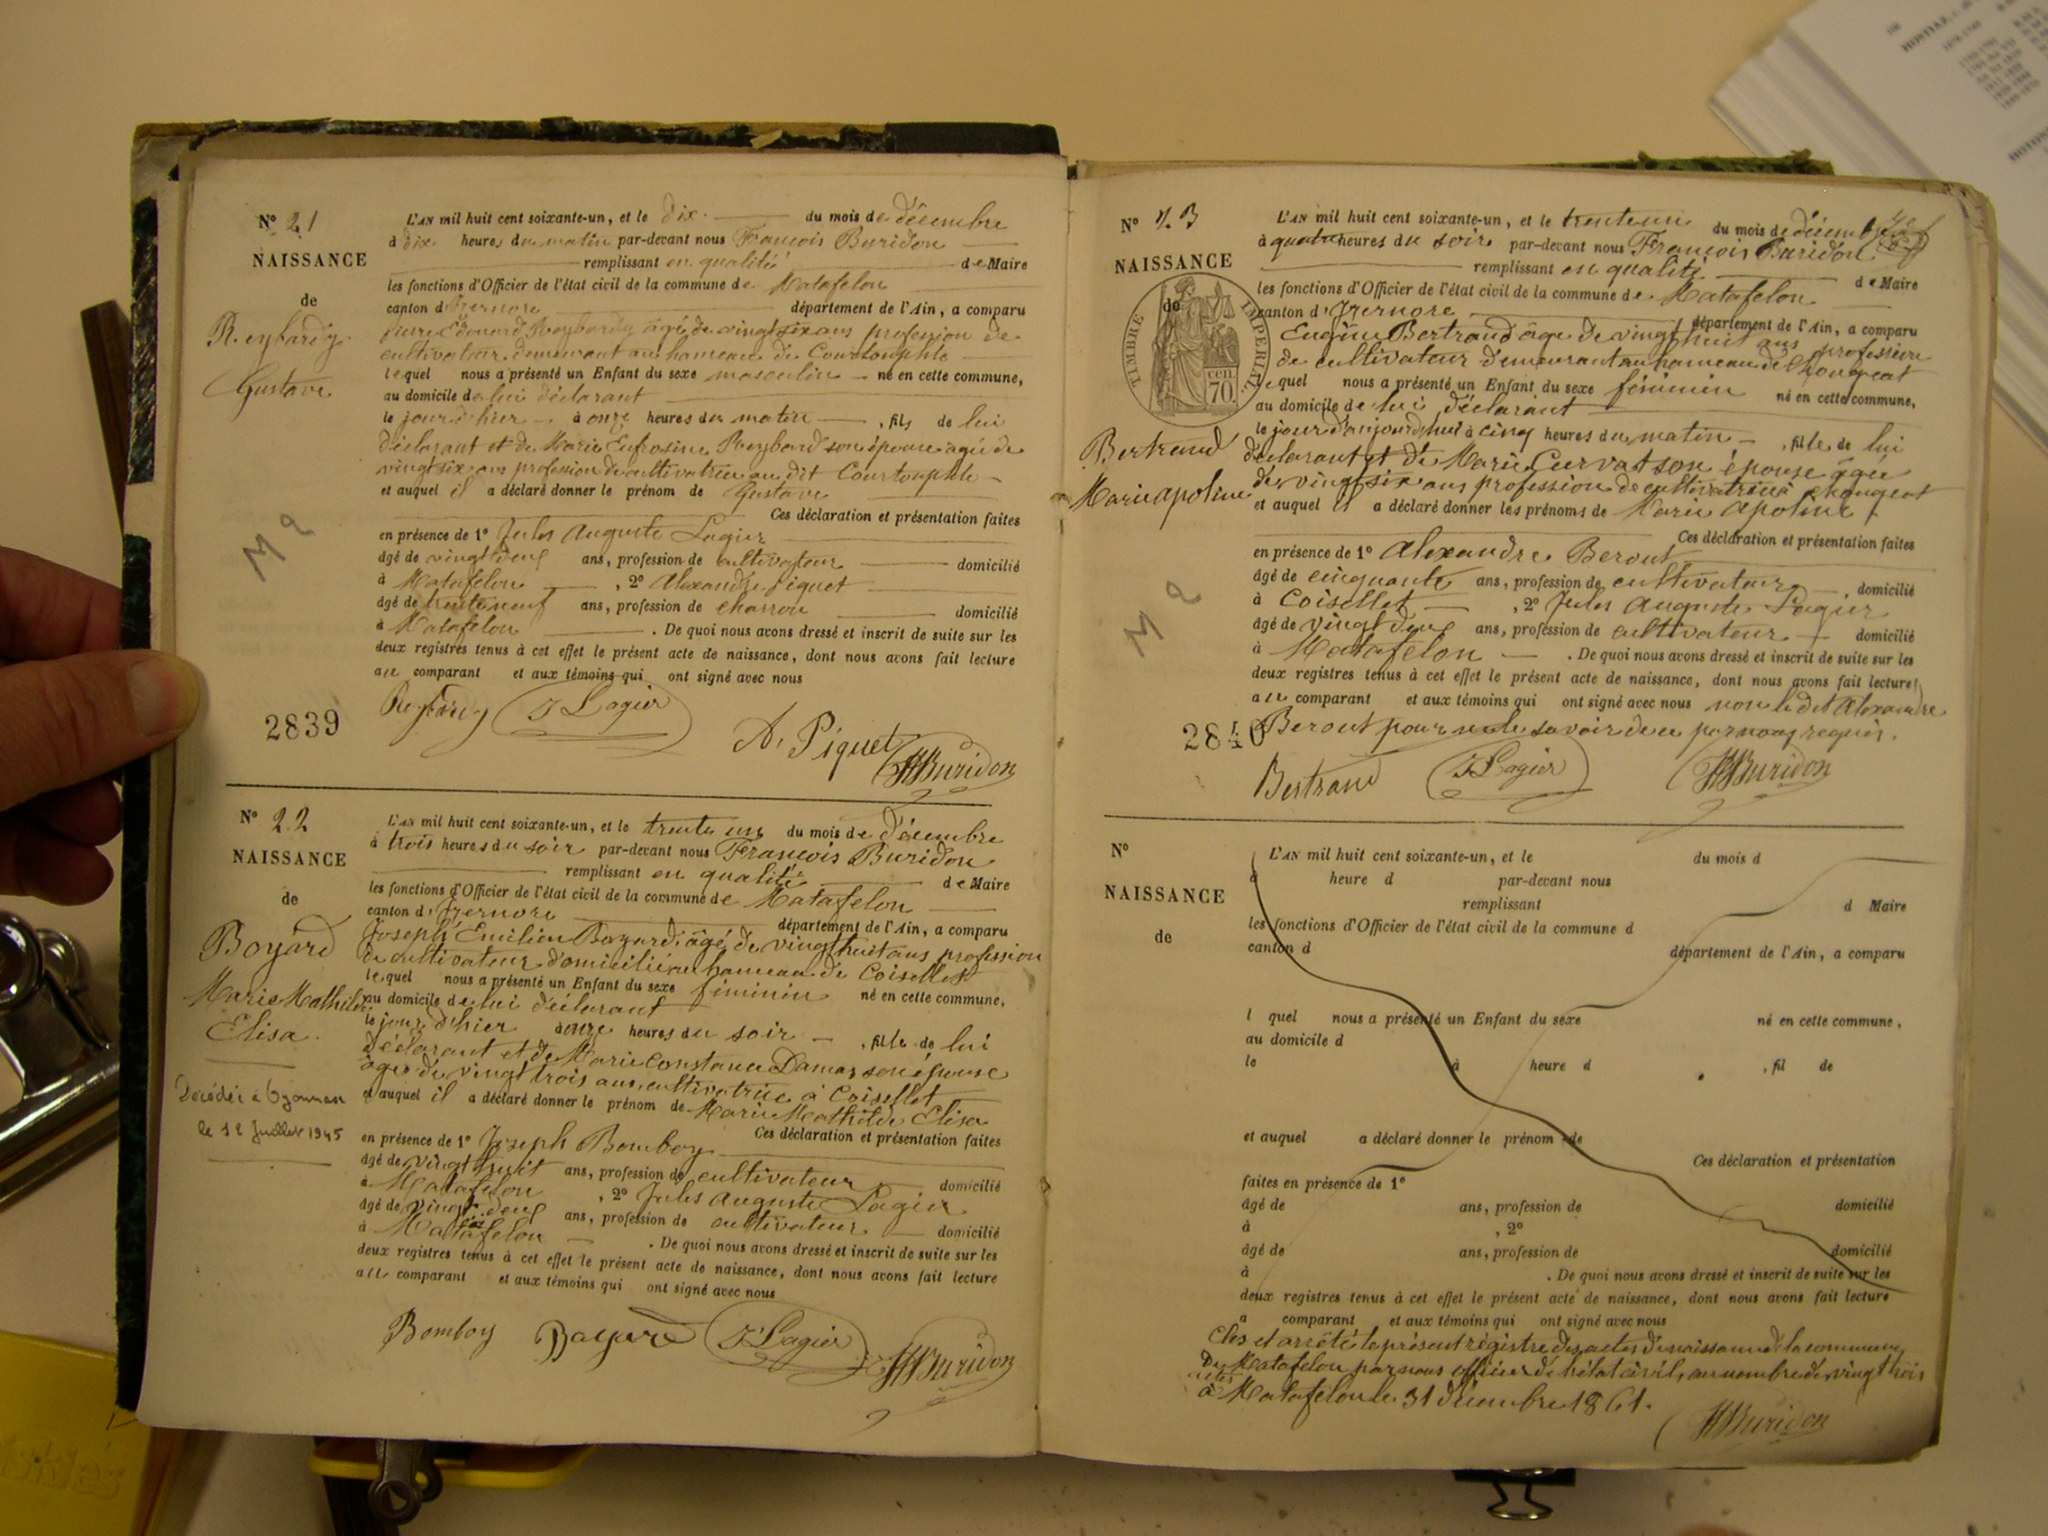 N° 21
NAISSANCE
de
Reybardy
Gustave
M a
2839
L'AN mil huit cent soixante-un, et le dix du mois de décembre
à dix heures du matin par-devant nous François Buridon
remplissant en qualité de Maire
les fonctions d'Officier de l'état civil de la commune de Matafelon
canton d'Izernore département de l'Ain, a comparu
Edouard Reybardy âgé de vingt six ans profession de
cultivateur demeurant au hameau de Courtouphle
lequel nous a présenté un Enfant du sexe masculin né en cette commune,
au domicile de lui déclarant
le jour d'hier à onze heures du matin, fils de lui
déclarant et de Marie Eufrosine Reybard son épouse agée de
vingt six ans profession de cultivatrice au dit Courtouphle
et auquel il a déclaré donner le prénom de Gustave
Ces déclaration et présentation faites
en présence de 1° Jules Auguste Lagier
âgé de vingt deux ans, profession de cultivateur domicilié
à Matafelon, 2° Alexandre Piquet
âgé de trente neuf ans, profession de charron domicilié
à Matafelon. De quoi nous avons dressé et inscrit de suite sur les
deux registres tenus à cet effet le présent acte de naissance, dont nous avons fait lecture
au comparant et aux témoins qui ont signé avec nous
Reybardy J Lagier
A. Piquet
Buridon
N° 22
NAISSANCE
de
Boyard
Marie Mathilde
Elisa.
Décédée à Oyonnax
le 12 Juillet 1945
L'AN mil huit cent soixante-un, et le trente un du mois de décembre
à trois heures du soir par-devant nous François Buridon
remplissant en qualité de Maire
les fonctions d'Officier de l'état civil de la commune de Matafelon
canton d'Izernore département de l'Ain, a comparu
Joseph Emilien Bayard âgé de vingt huit ans profession
de cultivateur domicilié au hameau de Coisellet
lequel nous a présenté un Enfant du sexe féminin né en cette commune,
au domicile de lui déclarant
le jour d'hier à onze heures du soir, fille de lui
déclarant et de Marie Constance Damas son épouse
âgée de vingt trois ans, cultivatrice à Coisellet
et auquel il a déclaré donner le prénom de Marie Mathilde Elisa
Ces déclaration et présentation faites
en présence de 1° Joseph Bomboy
âgé de vingt huit ans, profession de cultivateur domicilié
à Matafelon, 2° Jules Auguste Lagier
âgé de vingt deux ans, profession de cultivateur domicilié
à Matafelon. De quoi nous avons dressé et inscrit de suite sur les
deux registres tenus à cet effet le présent acte de naissance, dont nous avons fait lecture
au comparant et aux témoins qui ont signé avec nous
Bomboy Bayard J Lagier Buridon
N° 23
NAISSANCE
de
TIMBRE IMPERIAL
70 cen.
Bertrand
Marie apoline
M a
2840
L'AN mil huit cent soixante-un, et le trente un du mois de décembre
à quatre heures du soir par-devant nous François Buridon
remplissant en qualité de Maire
les fonctions d'Officier de l'état civil de la commune de Matafelon
canton d'Izernore département de l'Ain, a comparu
Eugène Bertrand âgé de vingt huit ans profession
de cultivateur demeurant au hameau de Chougeat
lequel nous a présenté un Enfant du sexe féminin né en cette commune,
au domicile de lui déclarant
le jour d'aujourd'hui à cinq heures du matin, fille de lui
déclarant et de Marie Curvat son épouse âgée
de vingt six ans profession de cultivatrice à Chougeat
et auquel il a déclaré donner les prénoms de Marie Apoline
Ces déclaration et présentation faites
en présence de 1° Alexandre Berout
âgé de cinquante ans, profession de cultivateur domicilié
à Coisellet, 2° Jules Auguste Lagier
âgé de vingt deux ans, profession de cultivateur domicilié
à Matafelon. De quoi nous avons dressé et inscrit de suite sur les
deux registres tenus à cet effet le présent acte de naissance, dont nous avons fait lecture
au comparant et aux témoins qui ont signé avec nous non le dit Alexandre
Berout pour ne le savoir de ce par nous requis.
Bertrand J Lagier Buridon
N°
NAISSANCE
de
L'AN mil huit cent soixante-un, et le du mois d
à heure d par-devant nous
remplissant d Maire
les fonctions d'Officier de l'état civil de la commune d
canton d département de l'Ain, a comparu
l quel nous a présenté un Enfant du sexe né en cette commune,
au domicile d
le à heure d, fil de
et auquel a déclaré donner le prénom de
Ces déclaration et présentation
faites en présence de 1°
âgé de ans, profession de domicilié
à , 2°
âgé de ans, profession de domicilié
à . De quoi nous avons dressé et inscrit de suite sur les
deux registres tenus à cet effet le présent acte de naissance, dont nous avons fait lecture
a comparant et aux témoins qui ont signé avec nous
Clos et arrêté le présent régistre des actes de naissance de la commune
de Matafelon par nous officier de l'état civil, au nombre de vingt trois
actes
à Matafelon le 31 décembre 1861.
Buridon